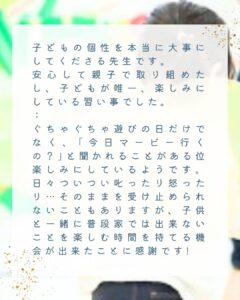 子どもの個性を本当に大事に
してくださる先生です。
安心して親子で取り組めた
し、子どもが唯一、楽しみに
している習い事でした。
：
ぐちゃぐちゃ遊びの日だけで
なく、「今日マービー行く
の？」と聞かれることがある位
楽しみにしているようです。
日々ついつい叱ったり怒った
り…そのままを受け止められ
ないこともありますが、子供
と一緒に普段家では出来ない
ことを楽しむ時間を持てる機
会が出来たことに感謝です!